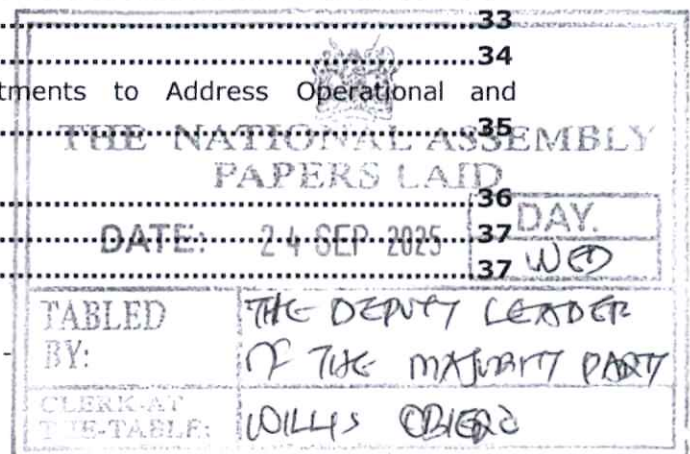 33
34
tments to Address Operational and
35
THE NATIONAL ASSEMBLY
PAPERS LAID
36
DATE: 24 SEP 2025 DAY.
37
WED
37
TABLED BY: THE DEPUTY LEADER
OF THE MAJORITY PARTY
CLERK-AT THE-TABLE: WILLIS OBIERO